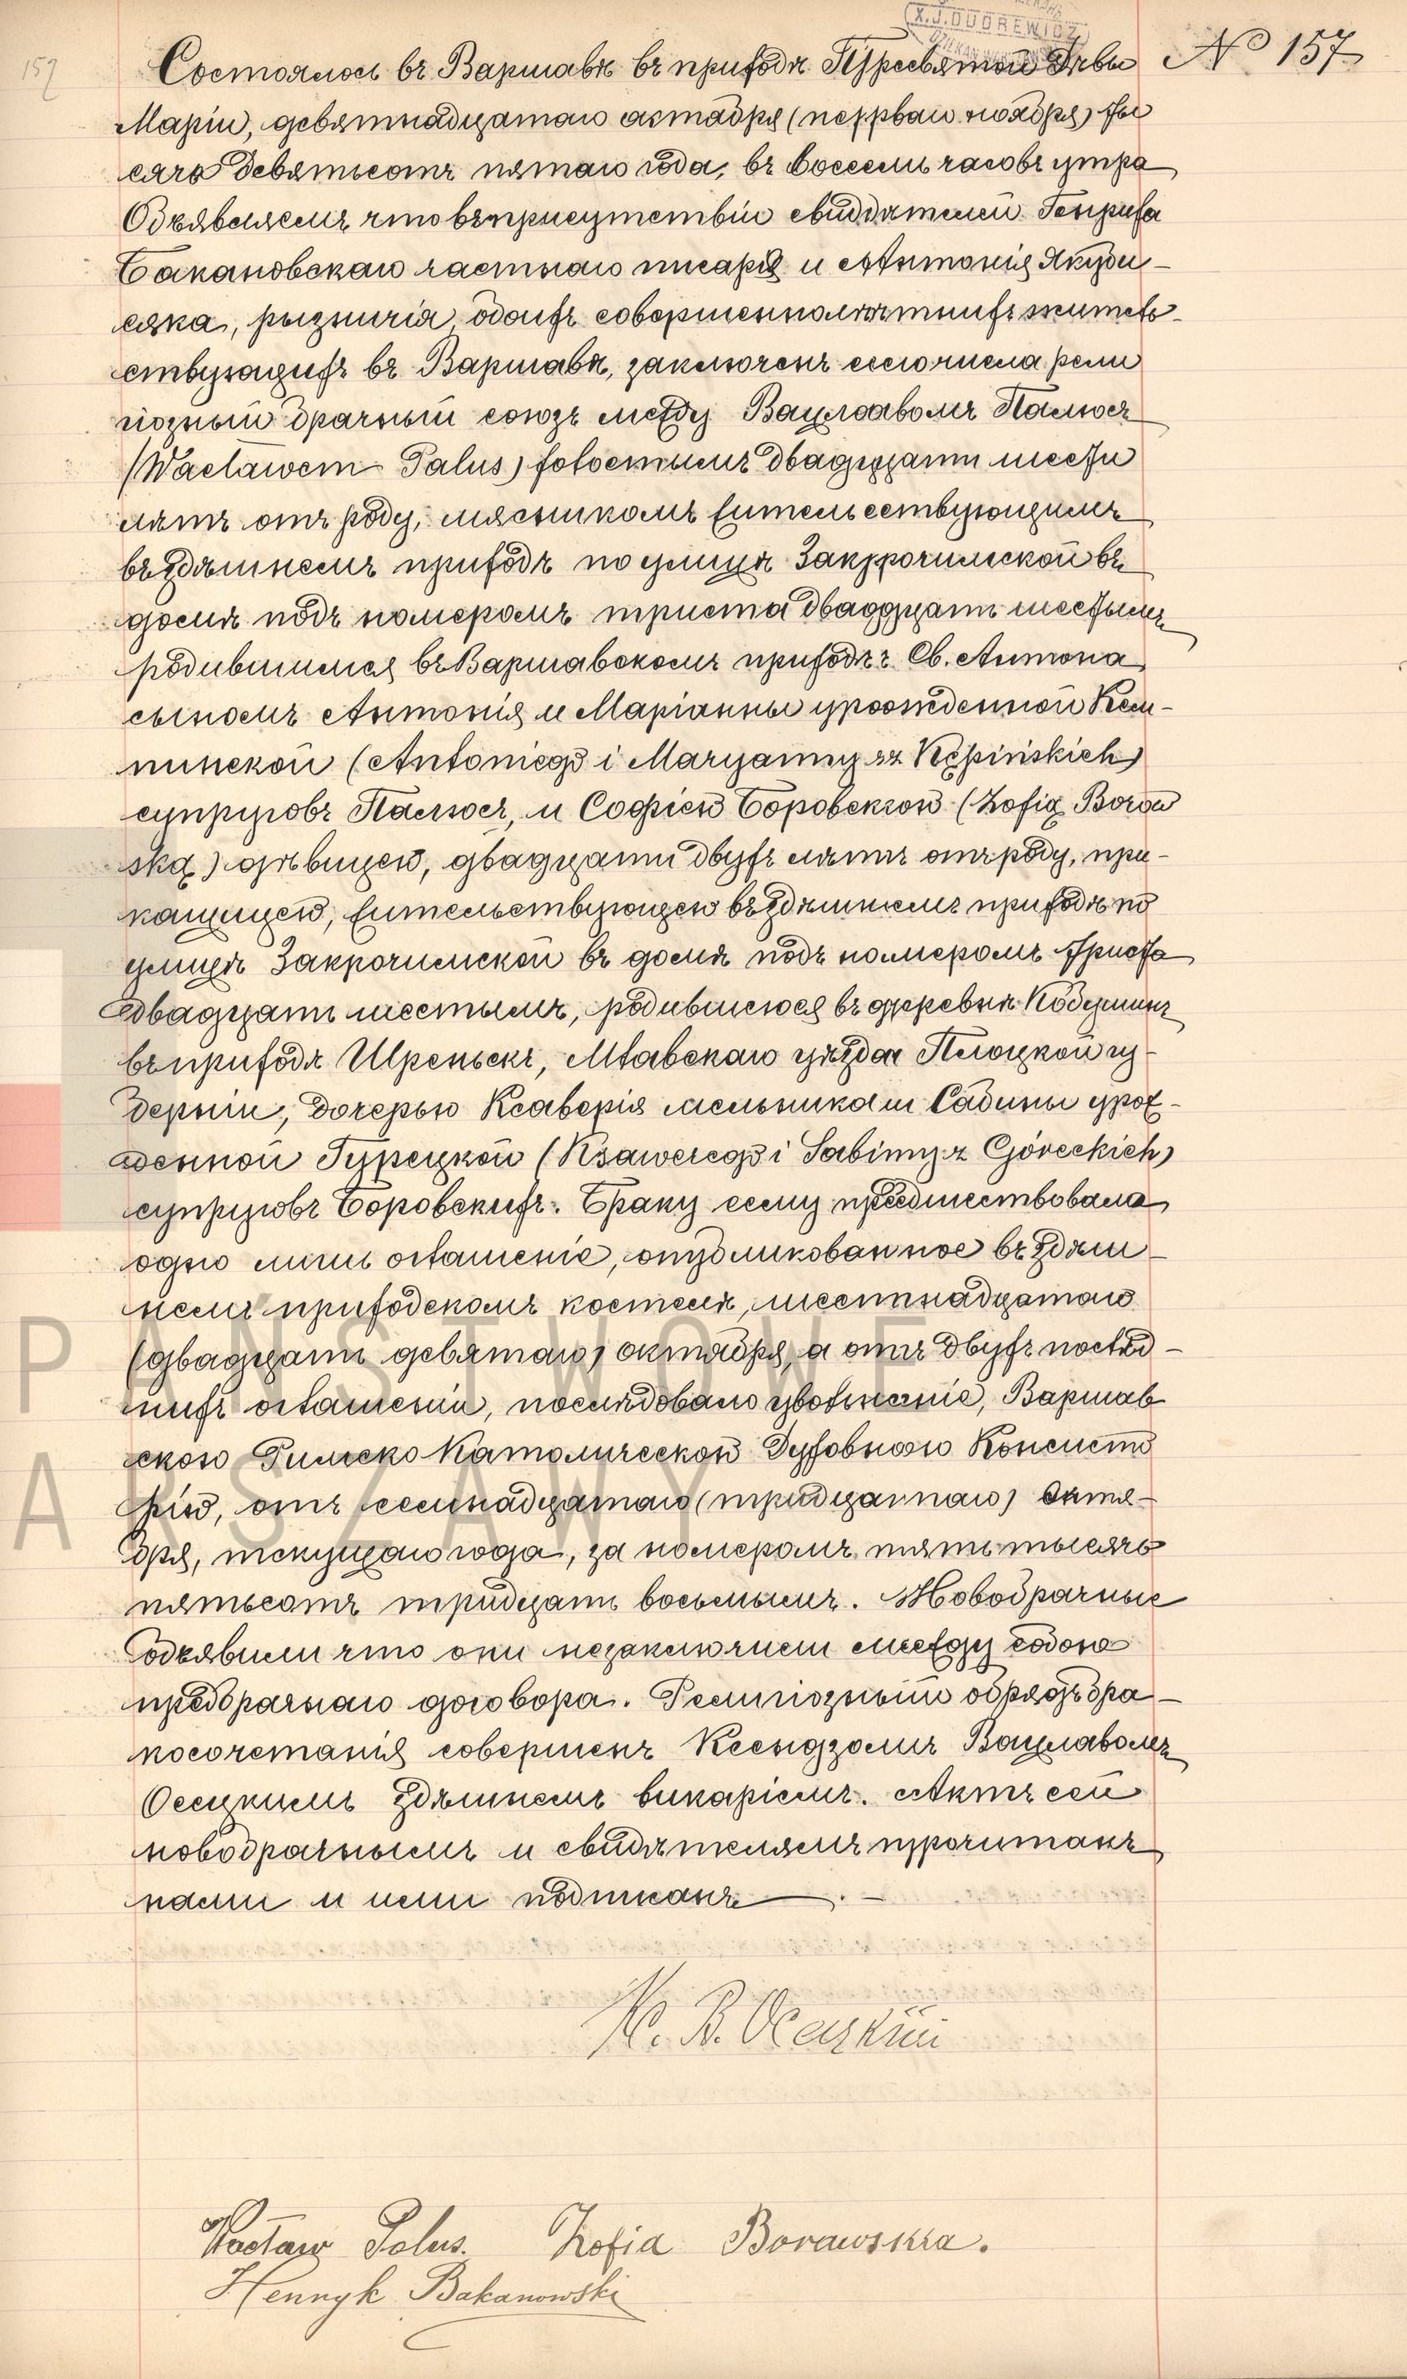 157
X. J. DUDREWICZ
№ 157
Состоялось въ Варшавѣ въ приходѣ Пресвятой Дѣвы
Маріи, девятнадцатаго октября (перваго ноября) ты
сяча девятьсотъ пятаго года, въ восемь часовъ утра
Объявляемъ что въ присутствіи свидѣтелей Генриха
Бакановскаго частнаго писаря и Антонія Якуби-
сяка, рызничія, обоихъ совершеннолѣтнихъ житель-
ствующихъ въ Варшавѣ, заключенъ сего числа рели
гіозный брачный союзъ между Вацлавомъ Палюсъ
(Wacławem Palus) холостымъ двадцати шести
лѣтъ отъ роду, мясникомъ жительствующимъ
въ здѣшнемъ приходѣ по улицѣ Закрочимской въ
домѣ подъ номеромъ триста двадцать шестымъ
родившимся въ Варшавскомъ приходѣ Св. Антона
сыномъ Антонія и Маріанны урожденной Кем-
пинской (Antoniego i Maryanny z Kępińskich)
супруговъ Палюсъ, и Софіею Боровскою (Zofią Boraw
ską) дѣвицею, двадцати двухъ лѣтъ отъ роду, при-
кащицею, жительствующею въ здѣшнемъ приходѣ по
улицѣ Закрочимской въ домѣ подъ номеромъ триста
двадцать шестымъ, родившеюся въ деревнѣ
въ приходѣ Шреньскъ, Млавскаго уѣзда Плоцкой гу-
берніи, дочерью Ксаверія мельника и Сабины урож-
денной Гурецкой (Ksawerego i Sabiny z Góreckich)
супруговъ Боровскихъ. Браку сему предшествовало
одно лишь оглашеніе, опубликованное въ здѣш-
немъ приходскомъ костелѣ, шестнадцатаго
(двадцать девятаго) октября, а отъ двухъ послѣд-
нихъ оглашеній, послѣдовало увольненіе, Варшав
скою Римско Католической Духовною Консисто
ріею, отъ семнадцатаго (тридцатаго) Октя-
бря, текущаго года, за номеромъ пять тысячъ
пятьсотъ тридцать восьмымъ. Новобрачные
объявили что они незаключили между собою
предбрачнаго договора. Религіозный обрядъ бра-
косочетанія совершенъ Ксендзомъ Вацлавомъ
Осецкимъ здѣшнемъ викаріемъ. Актъ сей
новобрачнымъ и свидѣтелямъ прочитанъ
нами и ими подписанъ
К. В. Осецкій
Wacław Palus. Zofia Borawska.
Henryk Bakanowski
PAŃSTWOWE
A
ARSZAWY